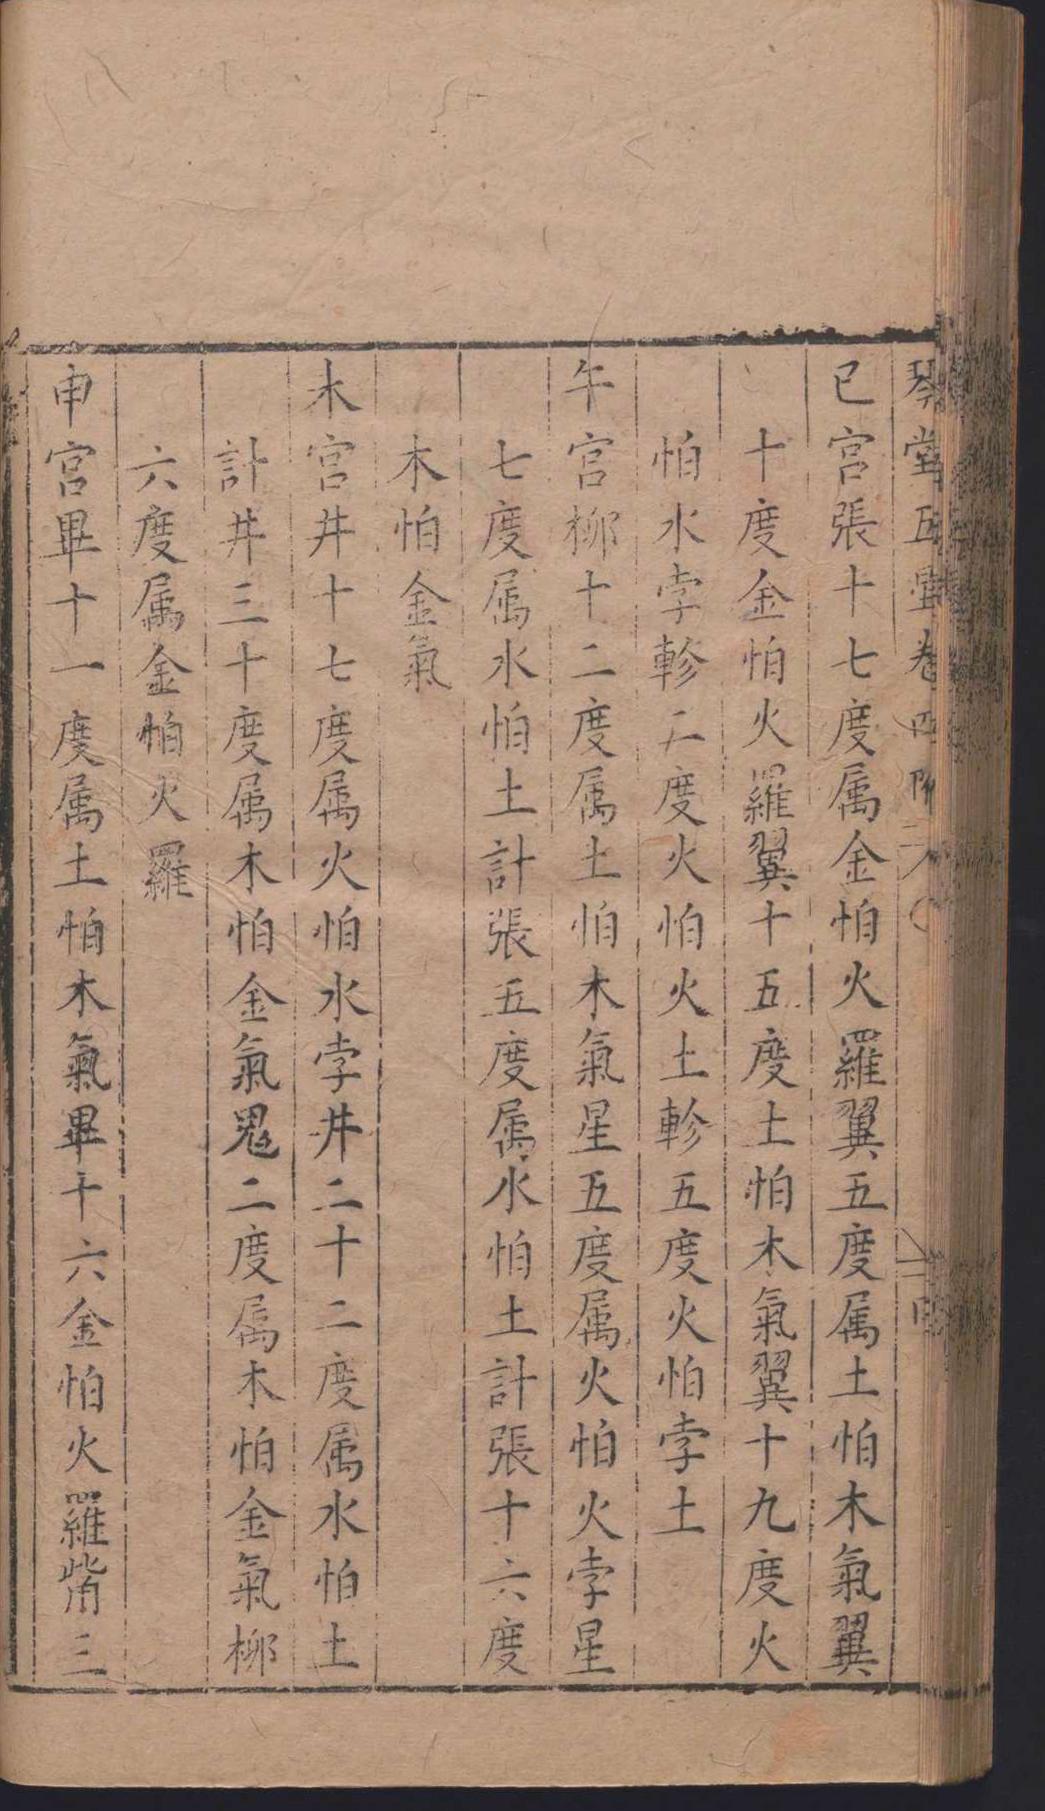 琴堂五星卷四附
巳宮張十七度属金怕火羅翼五度属土怕木氣翼
十度金怕火羅翼十五度土怕木氣翼十九度火
怕水孛軫二度火怕火土軫五度火怕孛土
午宮柳十二度属土怕木氣星五度属火怕火孛星
七度属水怕土計張五度属水怕土計張十六度
木怕金氣
木宮井十七度属火怕水孛井二十二度属水怕土
計井三十度属木怕金氣鬼二度属木怕金氣柳
六度属金怕火羅
申宮畢十一度属土怕木氣畢十六金怕火羅觜三